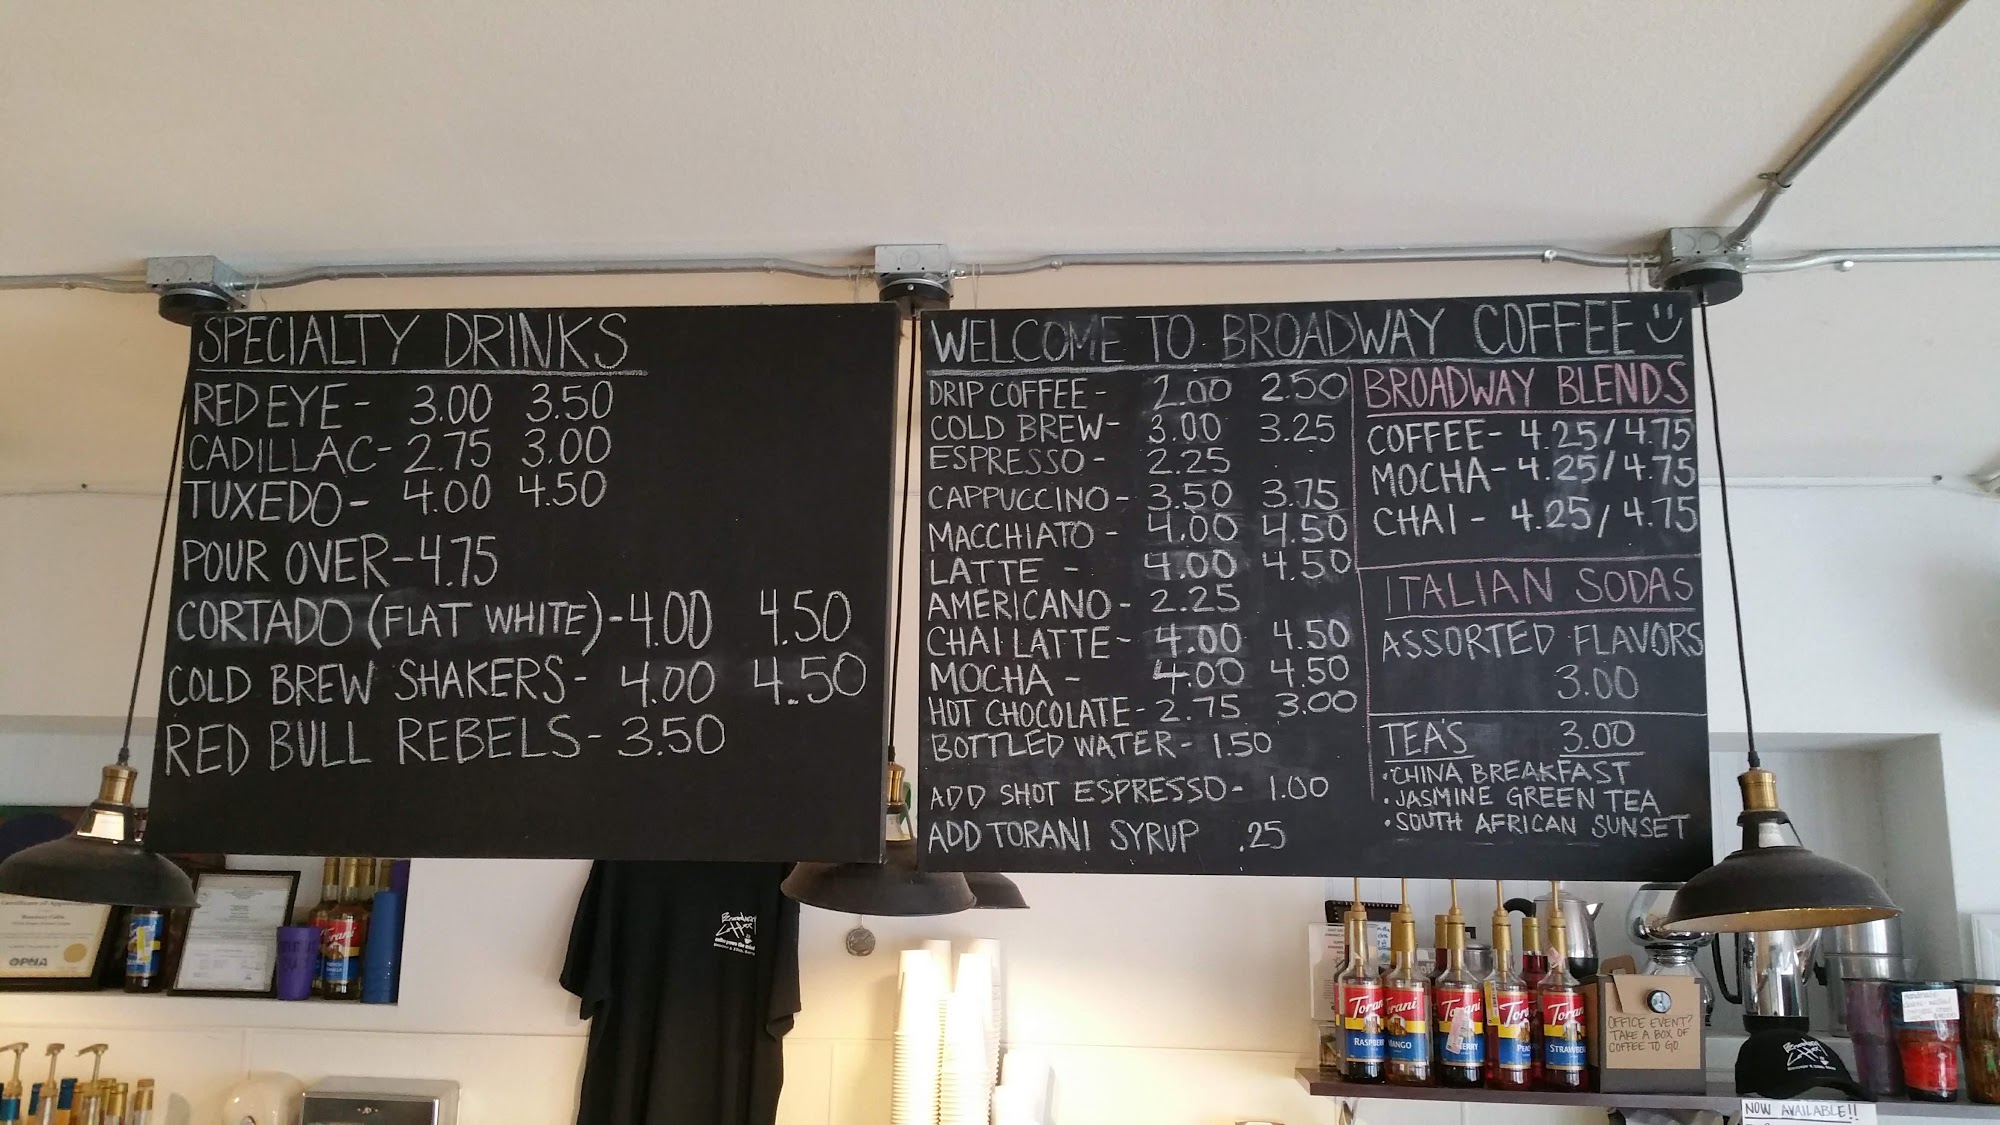 SPECIALTY DRINKS
RED EYE - 3.00 3.50
CADILLAC - 2.75 3.00
TUXEDO - 4.00 4.50
POUR OVER - 4.75
CORTADO (FLAT WHITE) - 4.00 4.50
COLD BREW SHAKERS - 4.00 4.50
RED BULL REBELS - 3.50
WELCOME TO BROADWAY COFFEE
DRIP COFFEE - 2.00 2.50
COLD BREW - 3.00 3.25
ESPRESSO - 2.25
CAPPUCCINO - 3.50 3.75
MACCHIATO - 4.00 4.50
LATTE - 4.00 4.50
AMERICANO - 2.25
CHAI LATTE - 4.00 4.50
MOCHA - 4.00 4.50
HOT CHOCOLATE - 2.75 3.00
BOTTLED WATER - 1.50
ADD SHOT ESPRESSO - 1.00
ADD TORANI SYRUP .25
BROADWAY BLENDS
COFFEE - 4.25/4.75
MOCHA - 4.25/4.75
CHAI - 4.25/4.75
ITALIAN SODAS
ASSORTED FLAVORS
3.00
TEA'S 3.00
• CHINA BREAKFAST
• JASMINE GREEN TEA
• SOUTH AFRICAN SUNSET
Torani
Torani
Torani
OFFICE EVENT?
TAKE A BOX OF
COFFEE TO GO.
NOW AVAILABLE!!